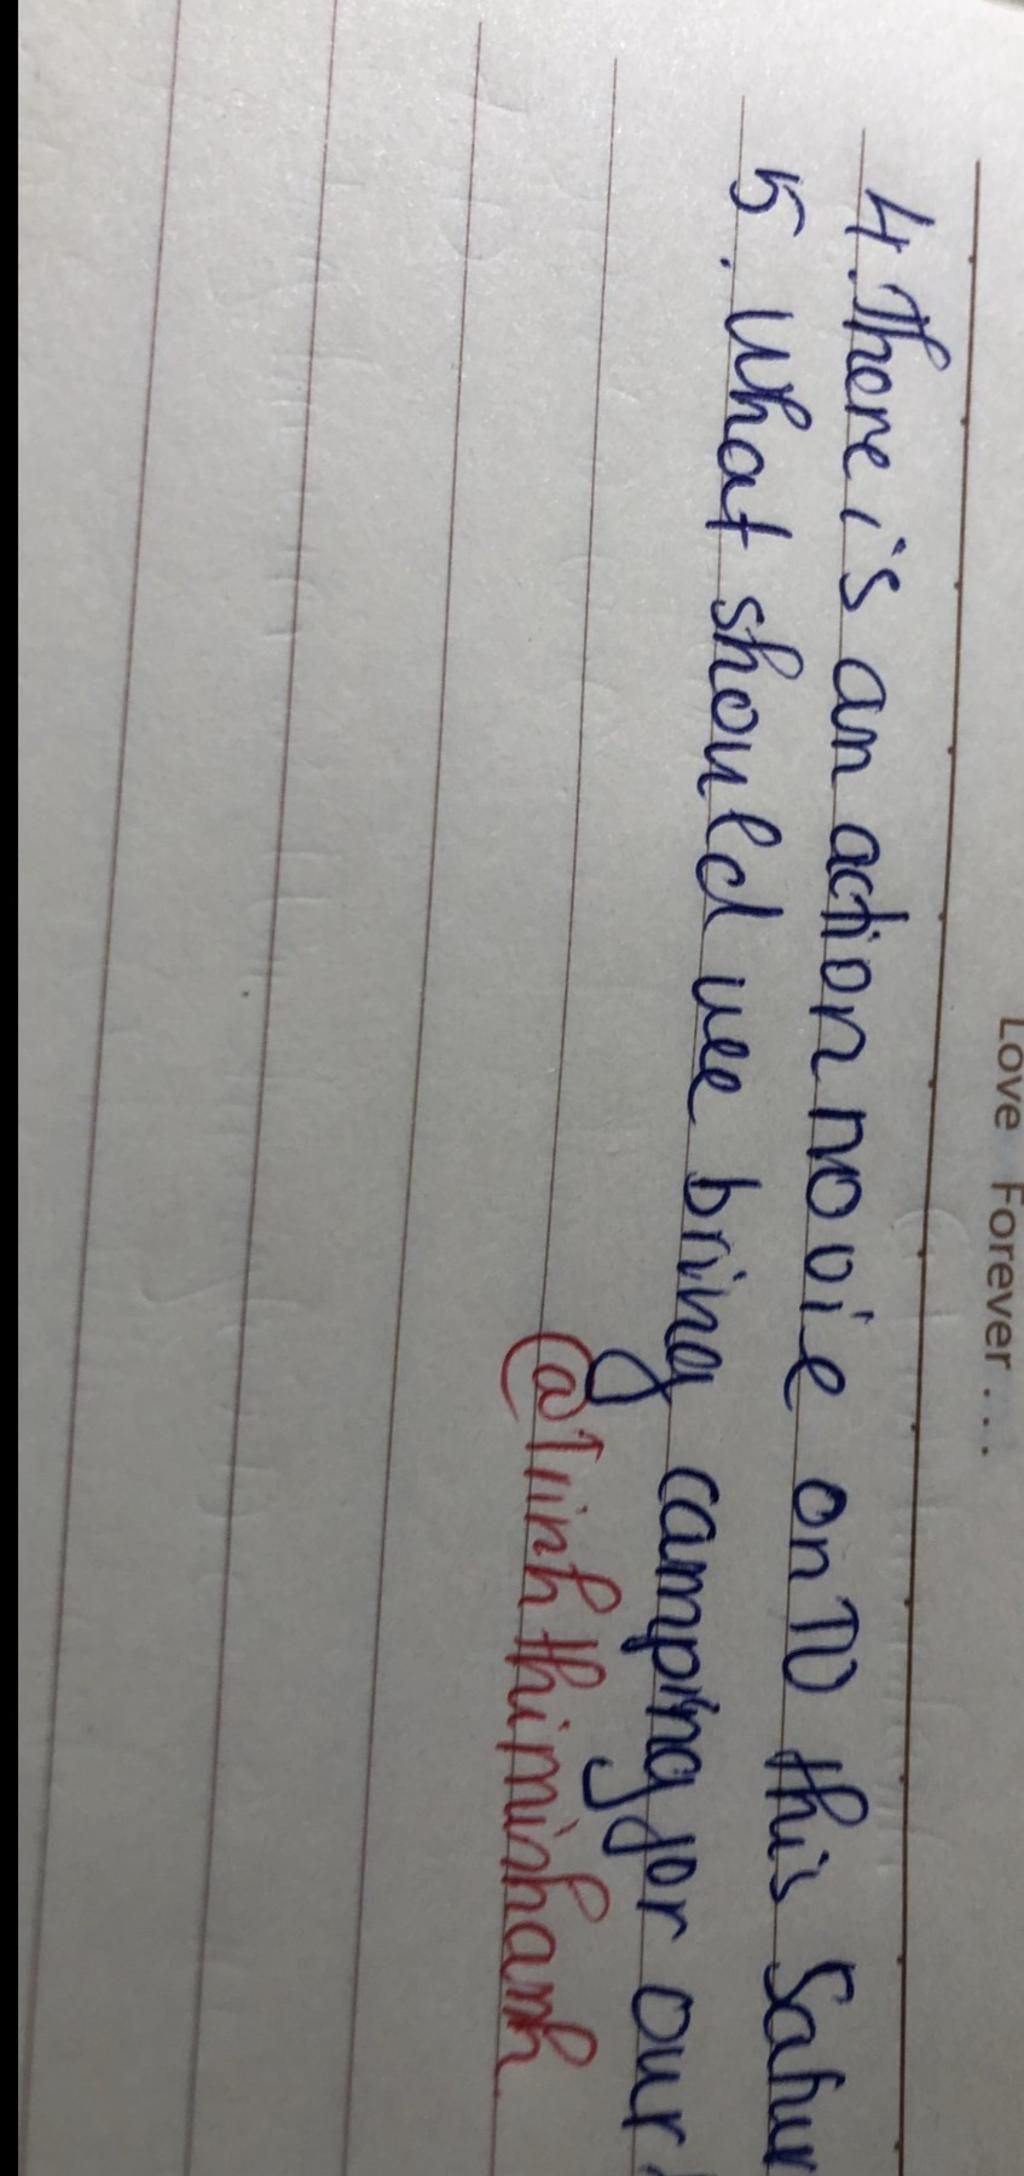 Love Forever...
4. There is an action novie on TV this Satur
5. What should we bring camping for our
@Trinhthiminhanh